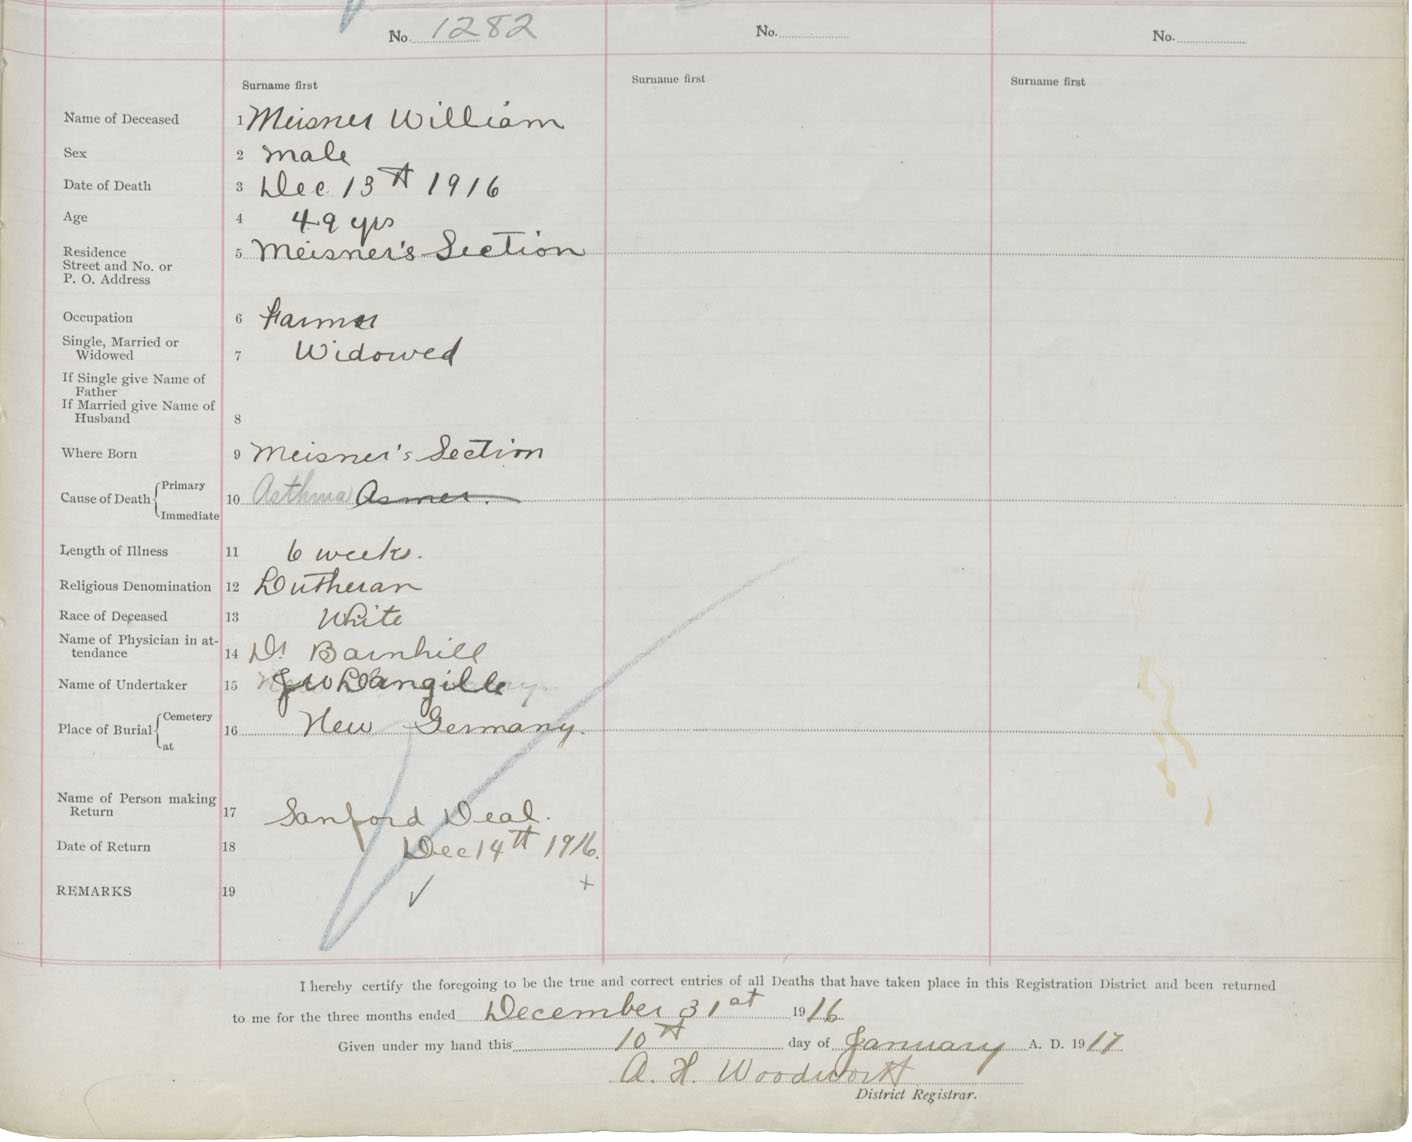 No. 1282 No. No.
Surname first Surname first Surname first
Name of Deceased 1 Meisner William
Sex 2 Male
Date of Death 3 Dec 13th 1916
Age 4 49 yrs
Residence 5 Meisner's Section
Street and No. or
P. O. Address
Occupation 6 Farmer
Single, Married or
Widowed 7 Widowed
If Single give Name of
Father
If Married give Name of
Husband 8
Where Born 9 Meisner's Section
Cause of Death { Primary
10 Asthma Asmer.
Immediate
Length of Illness 11 6 weeks.
Religious Denomination 12 Lutheran
Race of Deceased 13 White
Name of Physician in at-
tendance 14 Dr Barnhill
Name of Undertaker 15 J W Langille
Place of Burial { Cemetery
16 New Germany.
at
Name of Person making
Return 17 Sanford Deal.
Date of Return 18 Dec 14th 1916.
REMARKS 19
I hereby certify the foregoing to be the true and correct entries of all Deaths that have taken place in this Registration District and been returned
to me for the three months ended December 31st 1916
Given under my hand this 10th day of January A. D. 1917
A. H. Woodworth
District Registrar.